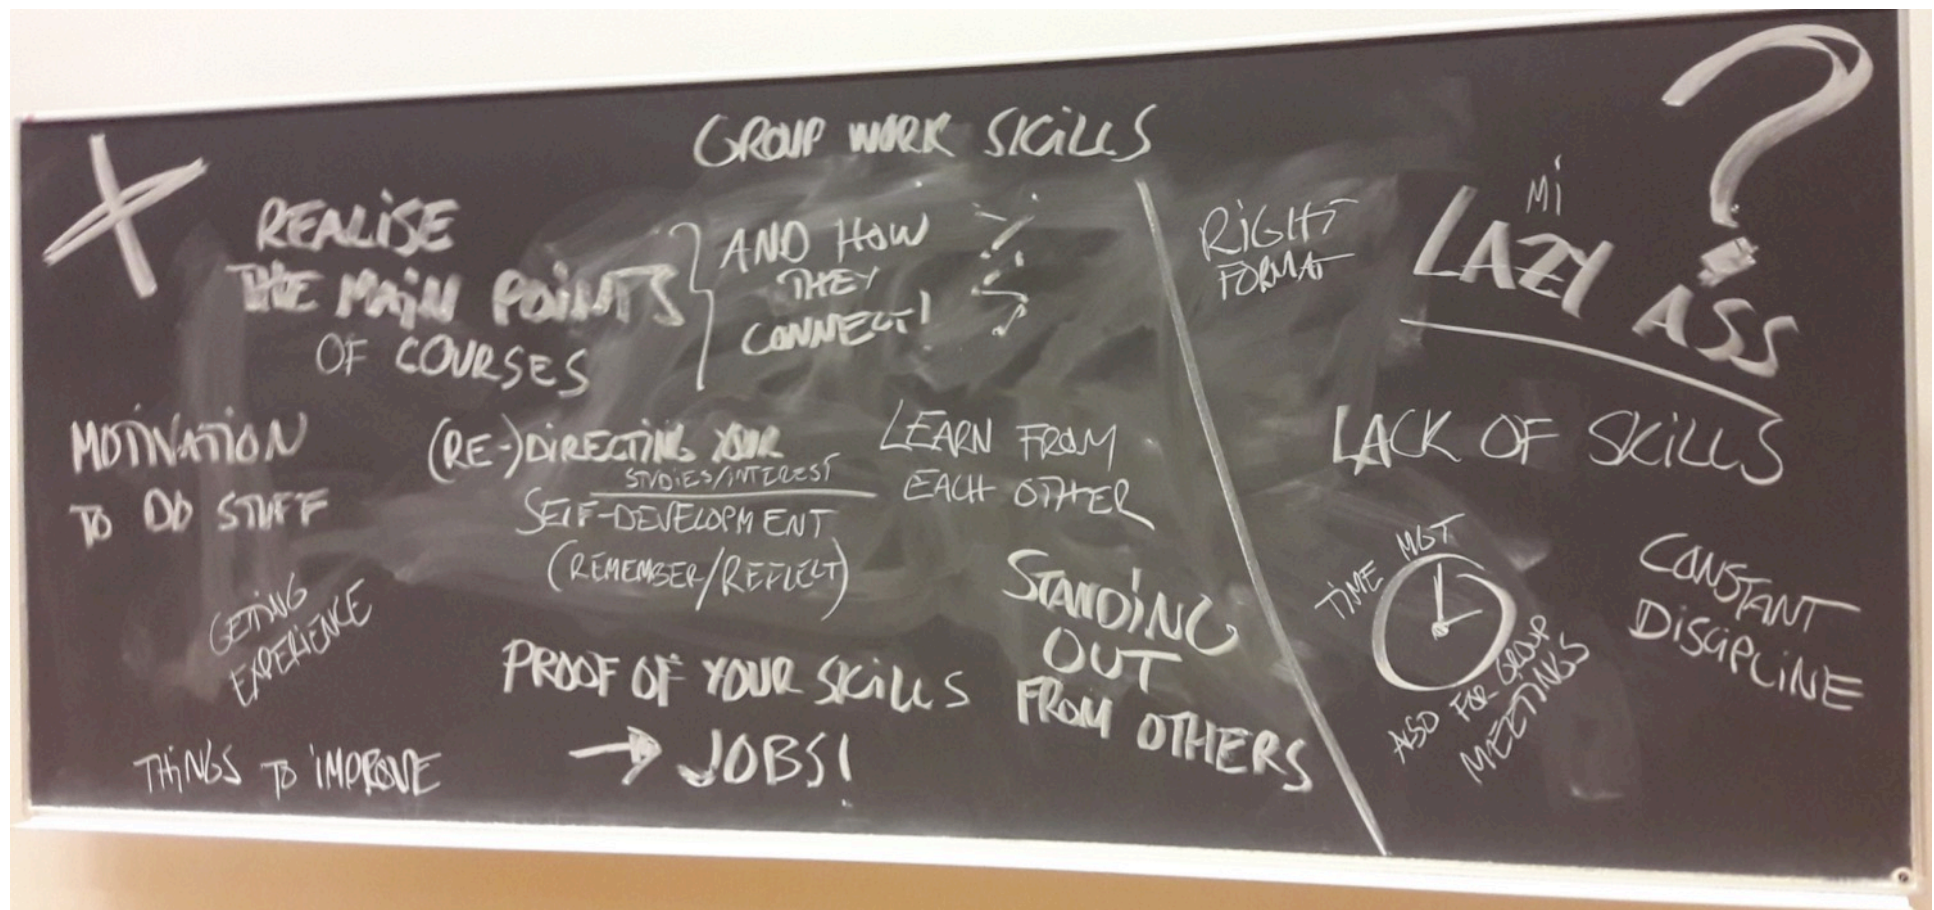 GROUP WORK SKILLS
REALISE
THE MAIN POINTS
OF COURSES
AND HOW
THEY
CONNECT!
MOTIVATION
TO DO STUFF
(RE-)DIRECTING YOUR
STUDIES/INTEREST
SELF-DEVELOPMENT
(REMEMBER/REFLECT)
LEARN FROM
EACH OTHER
GETTING
EXPERIENCE
PROOF OF YOUR SKILLS
→ JOBS!
STANDING
OUT
FROM OTHERS
THINGS TO IMPROVE
?
RIGHT
FORMAT
MI
LAZY ASS
LACK OF SKILLS
TIME MGT
ALSO FOR GROUP
MEETINGS
CONSTANT
DISCIPLINE